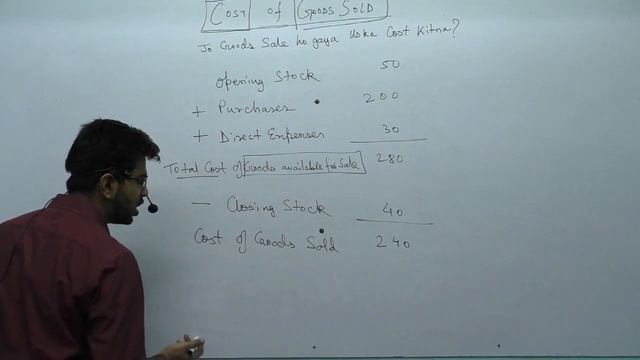 COST of GOODS SOLD
Jo Goods Sale ho gaya uska Cost Kitna?
opening Stock 50
+ Purchases 200
+ Direct Expenses 30
Total Cost of Goods available for Sale 280
- Closing Stock 40
Cost of Goods Sold 240